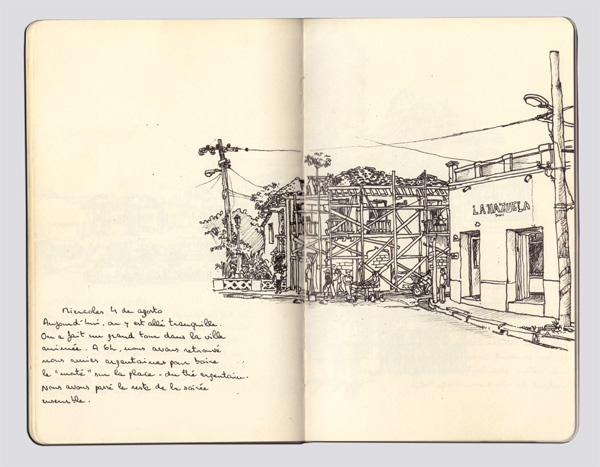 Miercoles 4 de agosto
Aujourd'hui, on y est allé tranquille.
On a fait un grand tour dans la ville
animée. A 6h, nous avons retrouvé
nous amies argentaines pour boire
le "maté" sur la place - du thé argentain.
Nous avons passé le reste de la soirée
ensemble.
LA HAZUELA